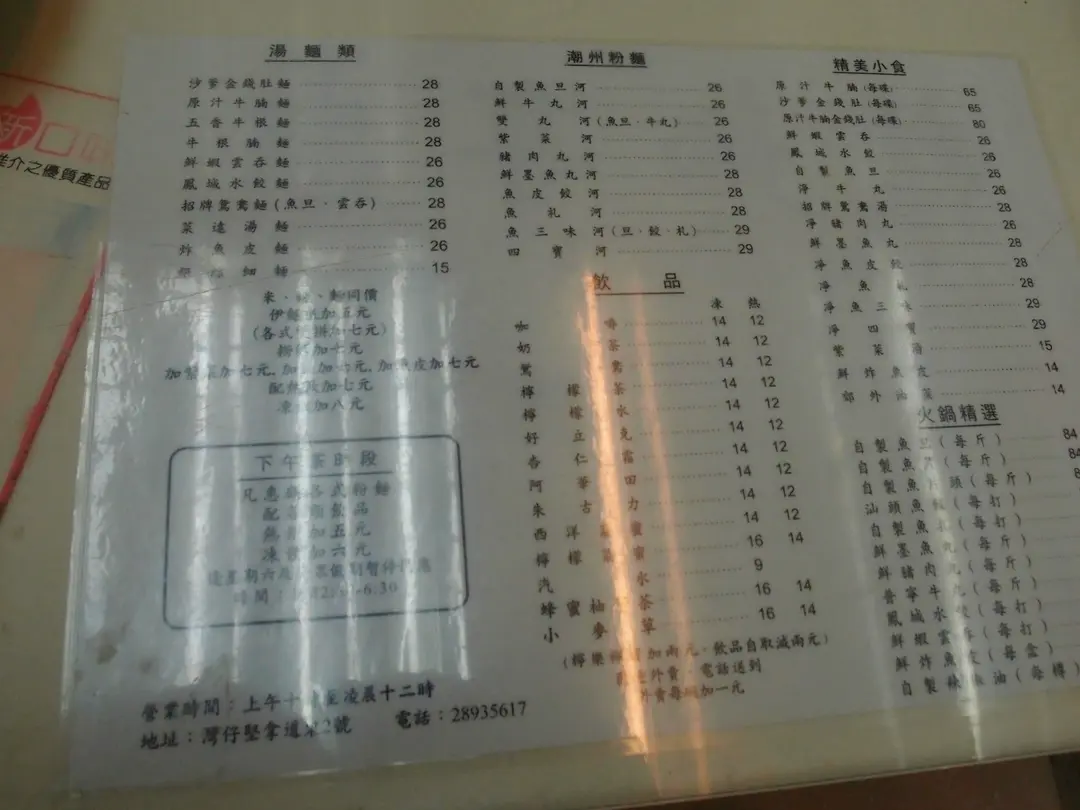 推介之優質產品
湯麵類
沙爹金錢肚麵 28
原汁牛腩麵 28
五香牛根麵 28
牛根腩麵 28
鮮蝦雲吞麵 26
鳳城水餃麵 26
招牌鴛鴦麵(魚旦.雲吞) 28
菜遠湯麵 26
炸魚皮麵 26
細麵 15
米、粉、麵同價
加五元
(各式加七元)
加七元
加七元, 加七元, 加魚皮加七元
加七元
加八元
下午茶時段
各式粉麵
配飲品
熱加五元
凍加六元
營業時間:上午十至凌晨十二時
地址:灣仔堅拿道東2號 電話:28935617
潮州粉麵
自製魚旦河 26
鮮牛丸河 26
雙丸河(魚旦.牛丸) 26
紫菜河 26
豬肉丸河 26
鮮墨魚丸河 28
魚皮餃河 28
魚札河 28
魚三味河(旦.餃.札) 29
四寶河 29
飲品
凍 熱
咖啡 14 12
奶茶 14 12
鴛鴦 14 12
檸檬茶 14 12
檸檬水 14 12
好立克 14 12
杏仁霜 14 12
阿華田 14 12
朱古力 14 12
西洋蜜 14 12
檸檬蜜 16 14
汽水 9
蜂蜜柚茶 16 14
小麥草 16 14
加兩元.飲品自取減兩元)
外賣.電話送到
外賣每碗加一元
精美小食
原汁牛腩(每碟) 65
沙爹金錢肚(每碟) 65
原汁牛腩金錢肚(每碟) 80
鮮蝦雲吞 26
鳳城水餃 26
自製魚旦 26
淨牛丸 26
招牌鴛鴦湯 28
淨豬肉丸 26
鮮墨魚丸 28
淨魚皮餃 28
淨魚札 28
淨魚三味 29
淨四寶 29
紫菜湯 15
鮮炸魚皮 14
郊外油菜 14
火鍋精選
自製魚旦(每斤) 84
自製魚(每斤)
自製魚頭(每斤)
汕頭魚(每打)
自製魚(每打)
鮮墨魚丸(每斤)
鮮豬肉丸(每斤)
普寧牛丸(每斤)
鳳城水餃(每打)
鮮蝦雲吞(每打)
鮮炸魚皮(每盒)
自製辣椒油(每樽)